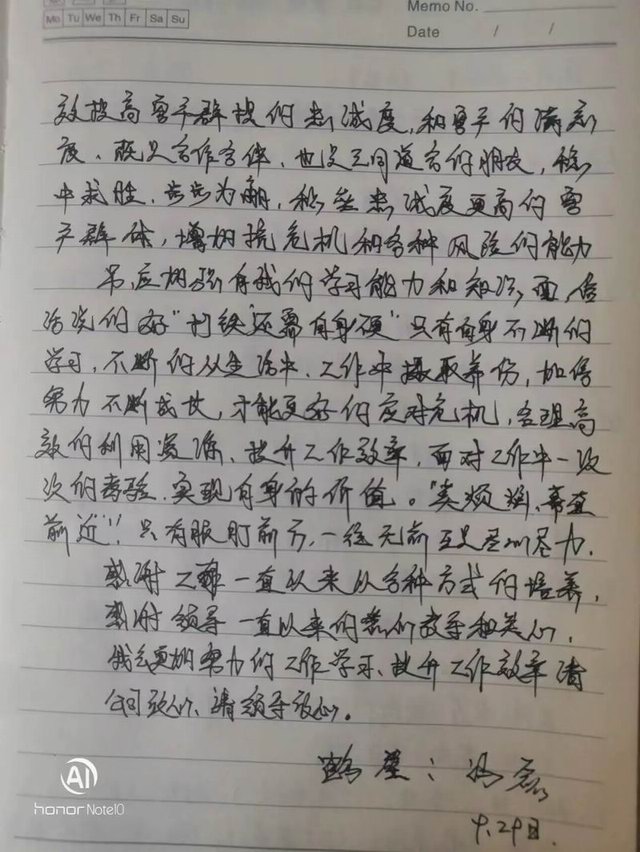 Mo Tu We Th Fr Sa Su
Memo No.
Date / /
效提高客户群技的忠诚度,和客户的满意
度、既是合作合伴,也是志同道合的朋友,稳
中求胜,步步为赢,积垒忠诚度更高的客
户群体,增加抗危机和各种风险的能力
加强自我们学习能力和知识面,俗
话说的好"打铁还需自身硬"只有自身不断的
学习,不断的从生活中、工作中摄取养份,加倍
努力不断成长,才能更好的应对危机,合理高
效的利用资源、提升工作效率,面对工作中一次
次的考验,实现自身的价值。
前"只有眼盯前方,一往无前
感谢一直以来以各种方式的培养,
感谢领导一直以来的教导和关心,
我会更加努力的工作学习、提升工作效率请
公司放心、请领导放心。
9.29日
AI
honor Note10